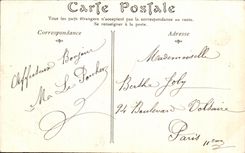 Carte Postale
Tous les pays étrangers n'acceptent pas la correspondance au recto.
Se renseigner à la poste.
Correspondance
Adresse
Affectueux Bonjour
Mademoiselle
Berthe Joly
94 Boulevard Voltaire
Paris
11ème